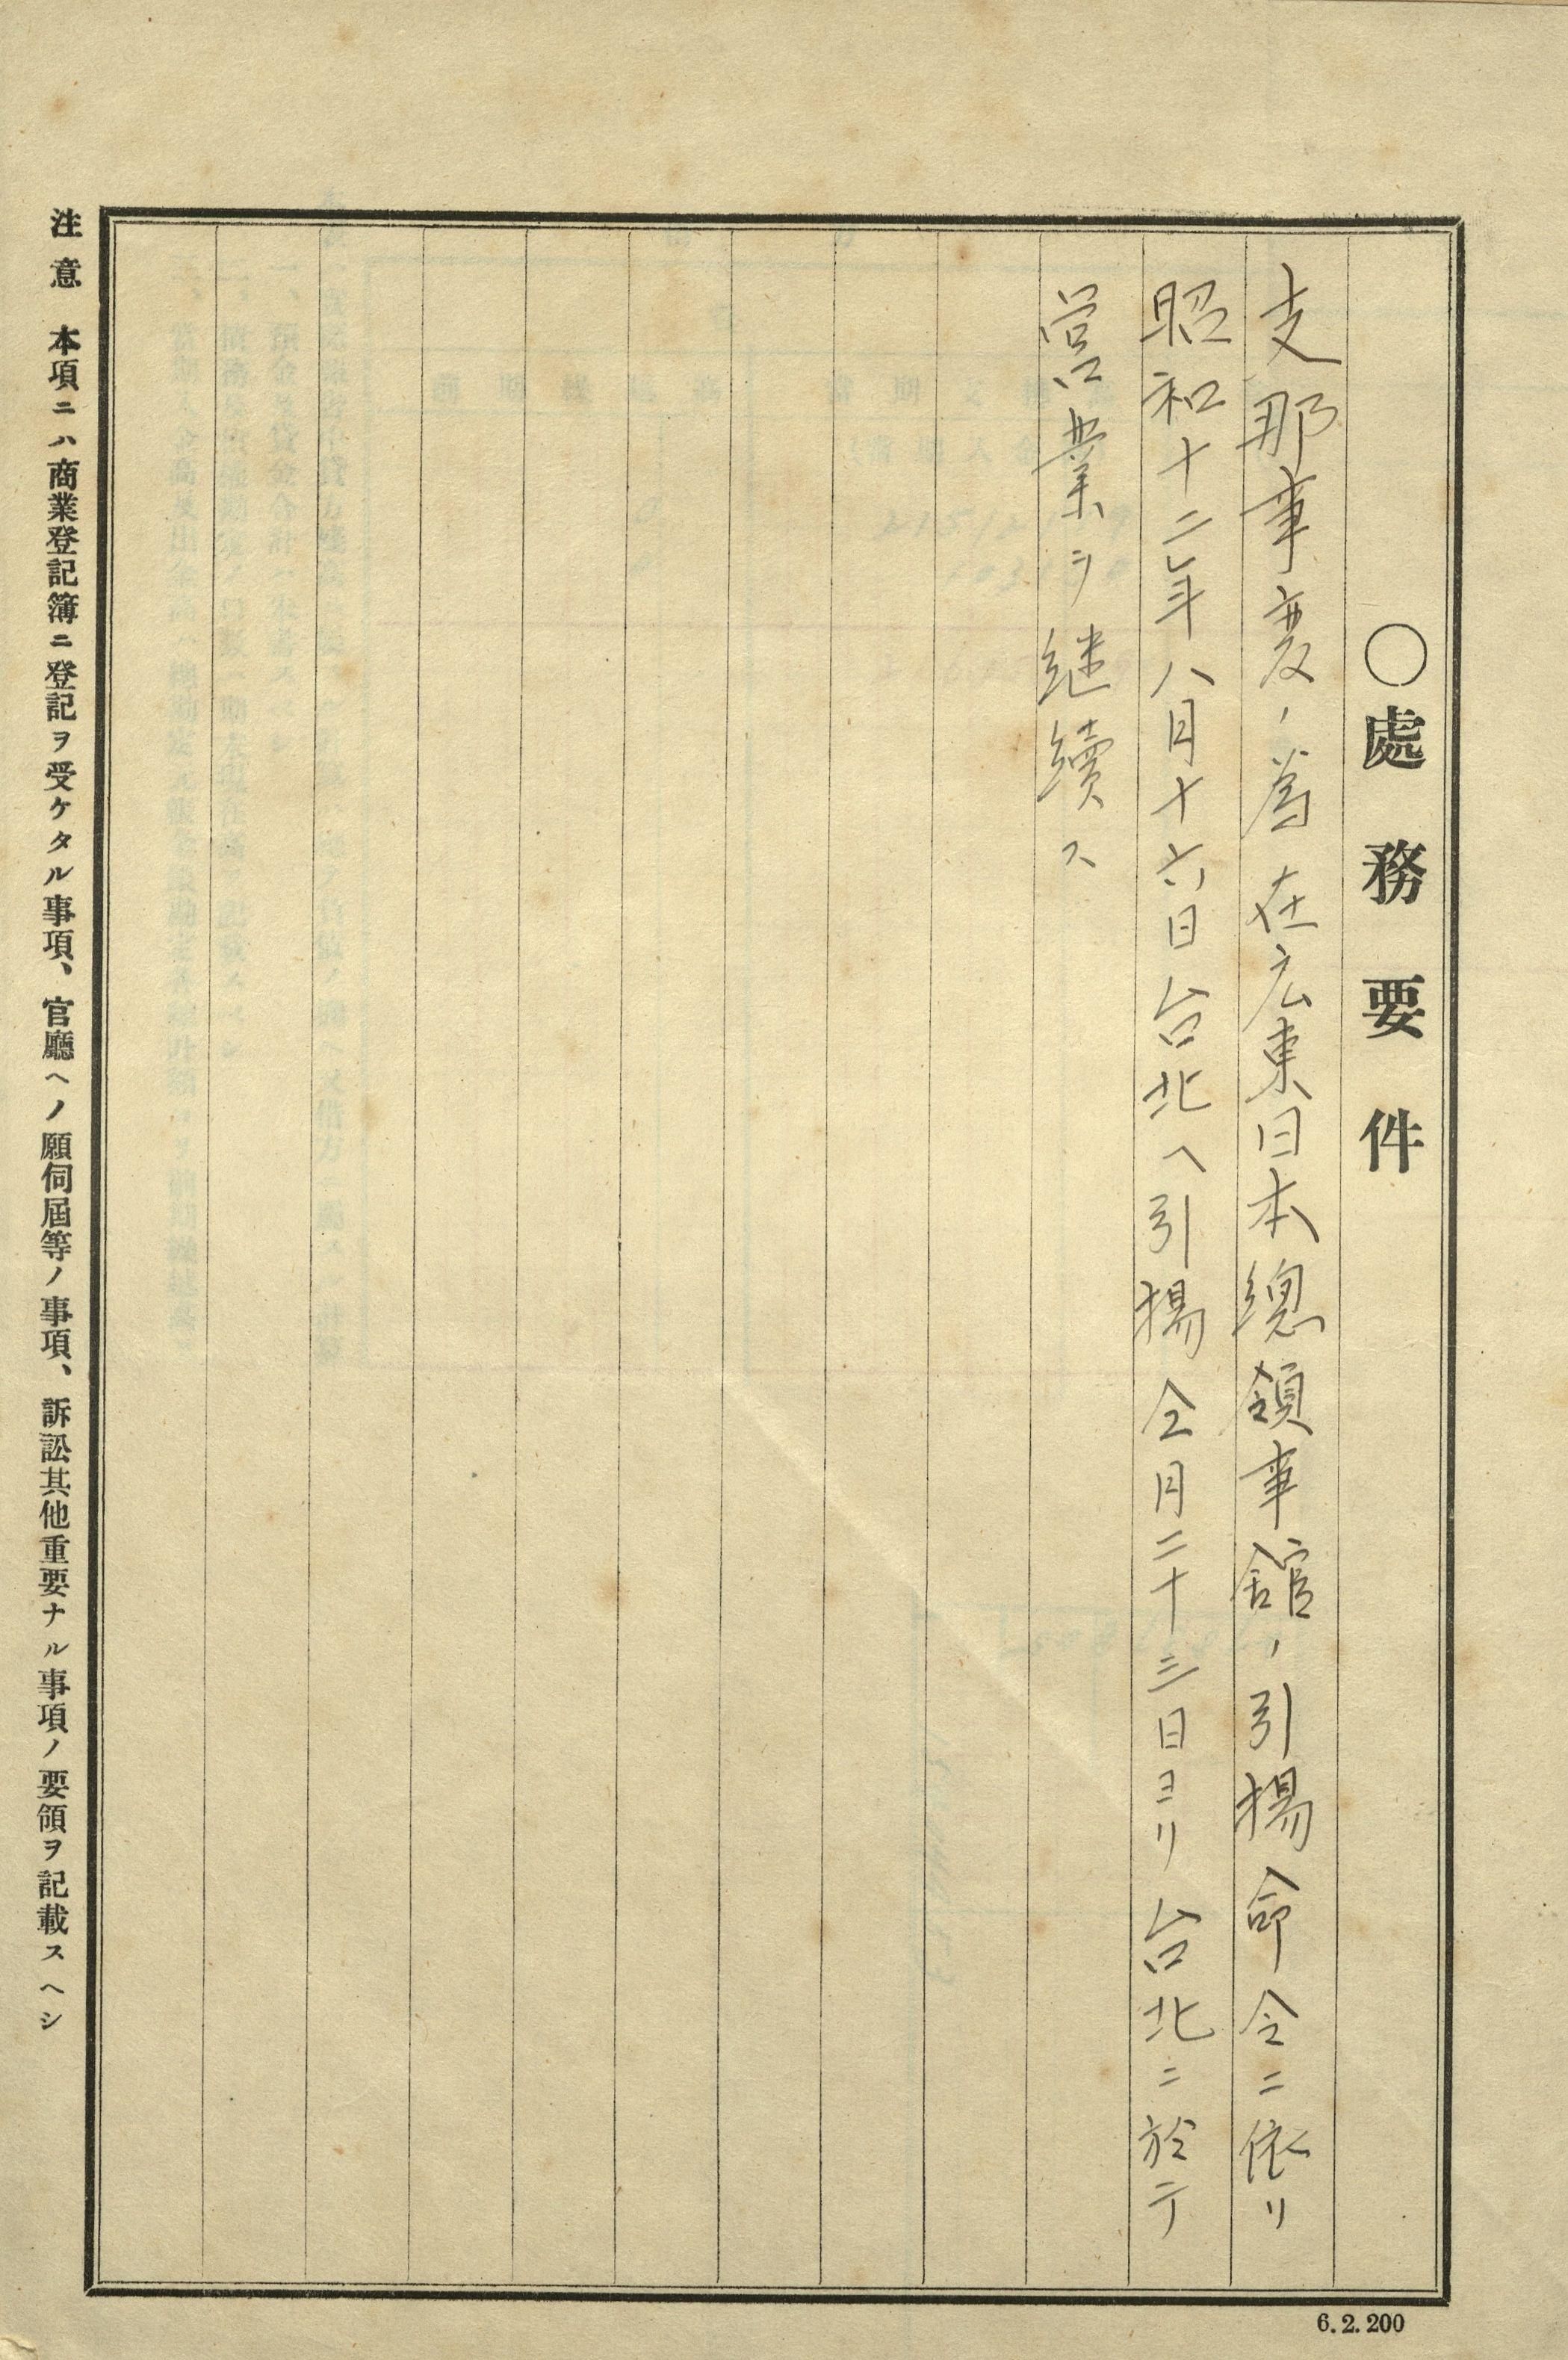 〇處務要件
支那事変ノ為在広東日本總領事館ノ引揚命令ニ依リ
昭和十二年八月十六日台北ヘ引揚仝月二十三日ヨリ台北ニ於テ
営業ヲ継續ス
注意 本項ニハ商業登記簿ニ登記ヲ受ケタル事項、官廳ヘノ願伺屆等ノ事項、訴訟其他重要ナル事項ノ要領ヲ記載スヘシ
6.2.200